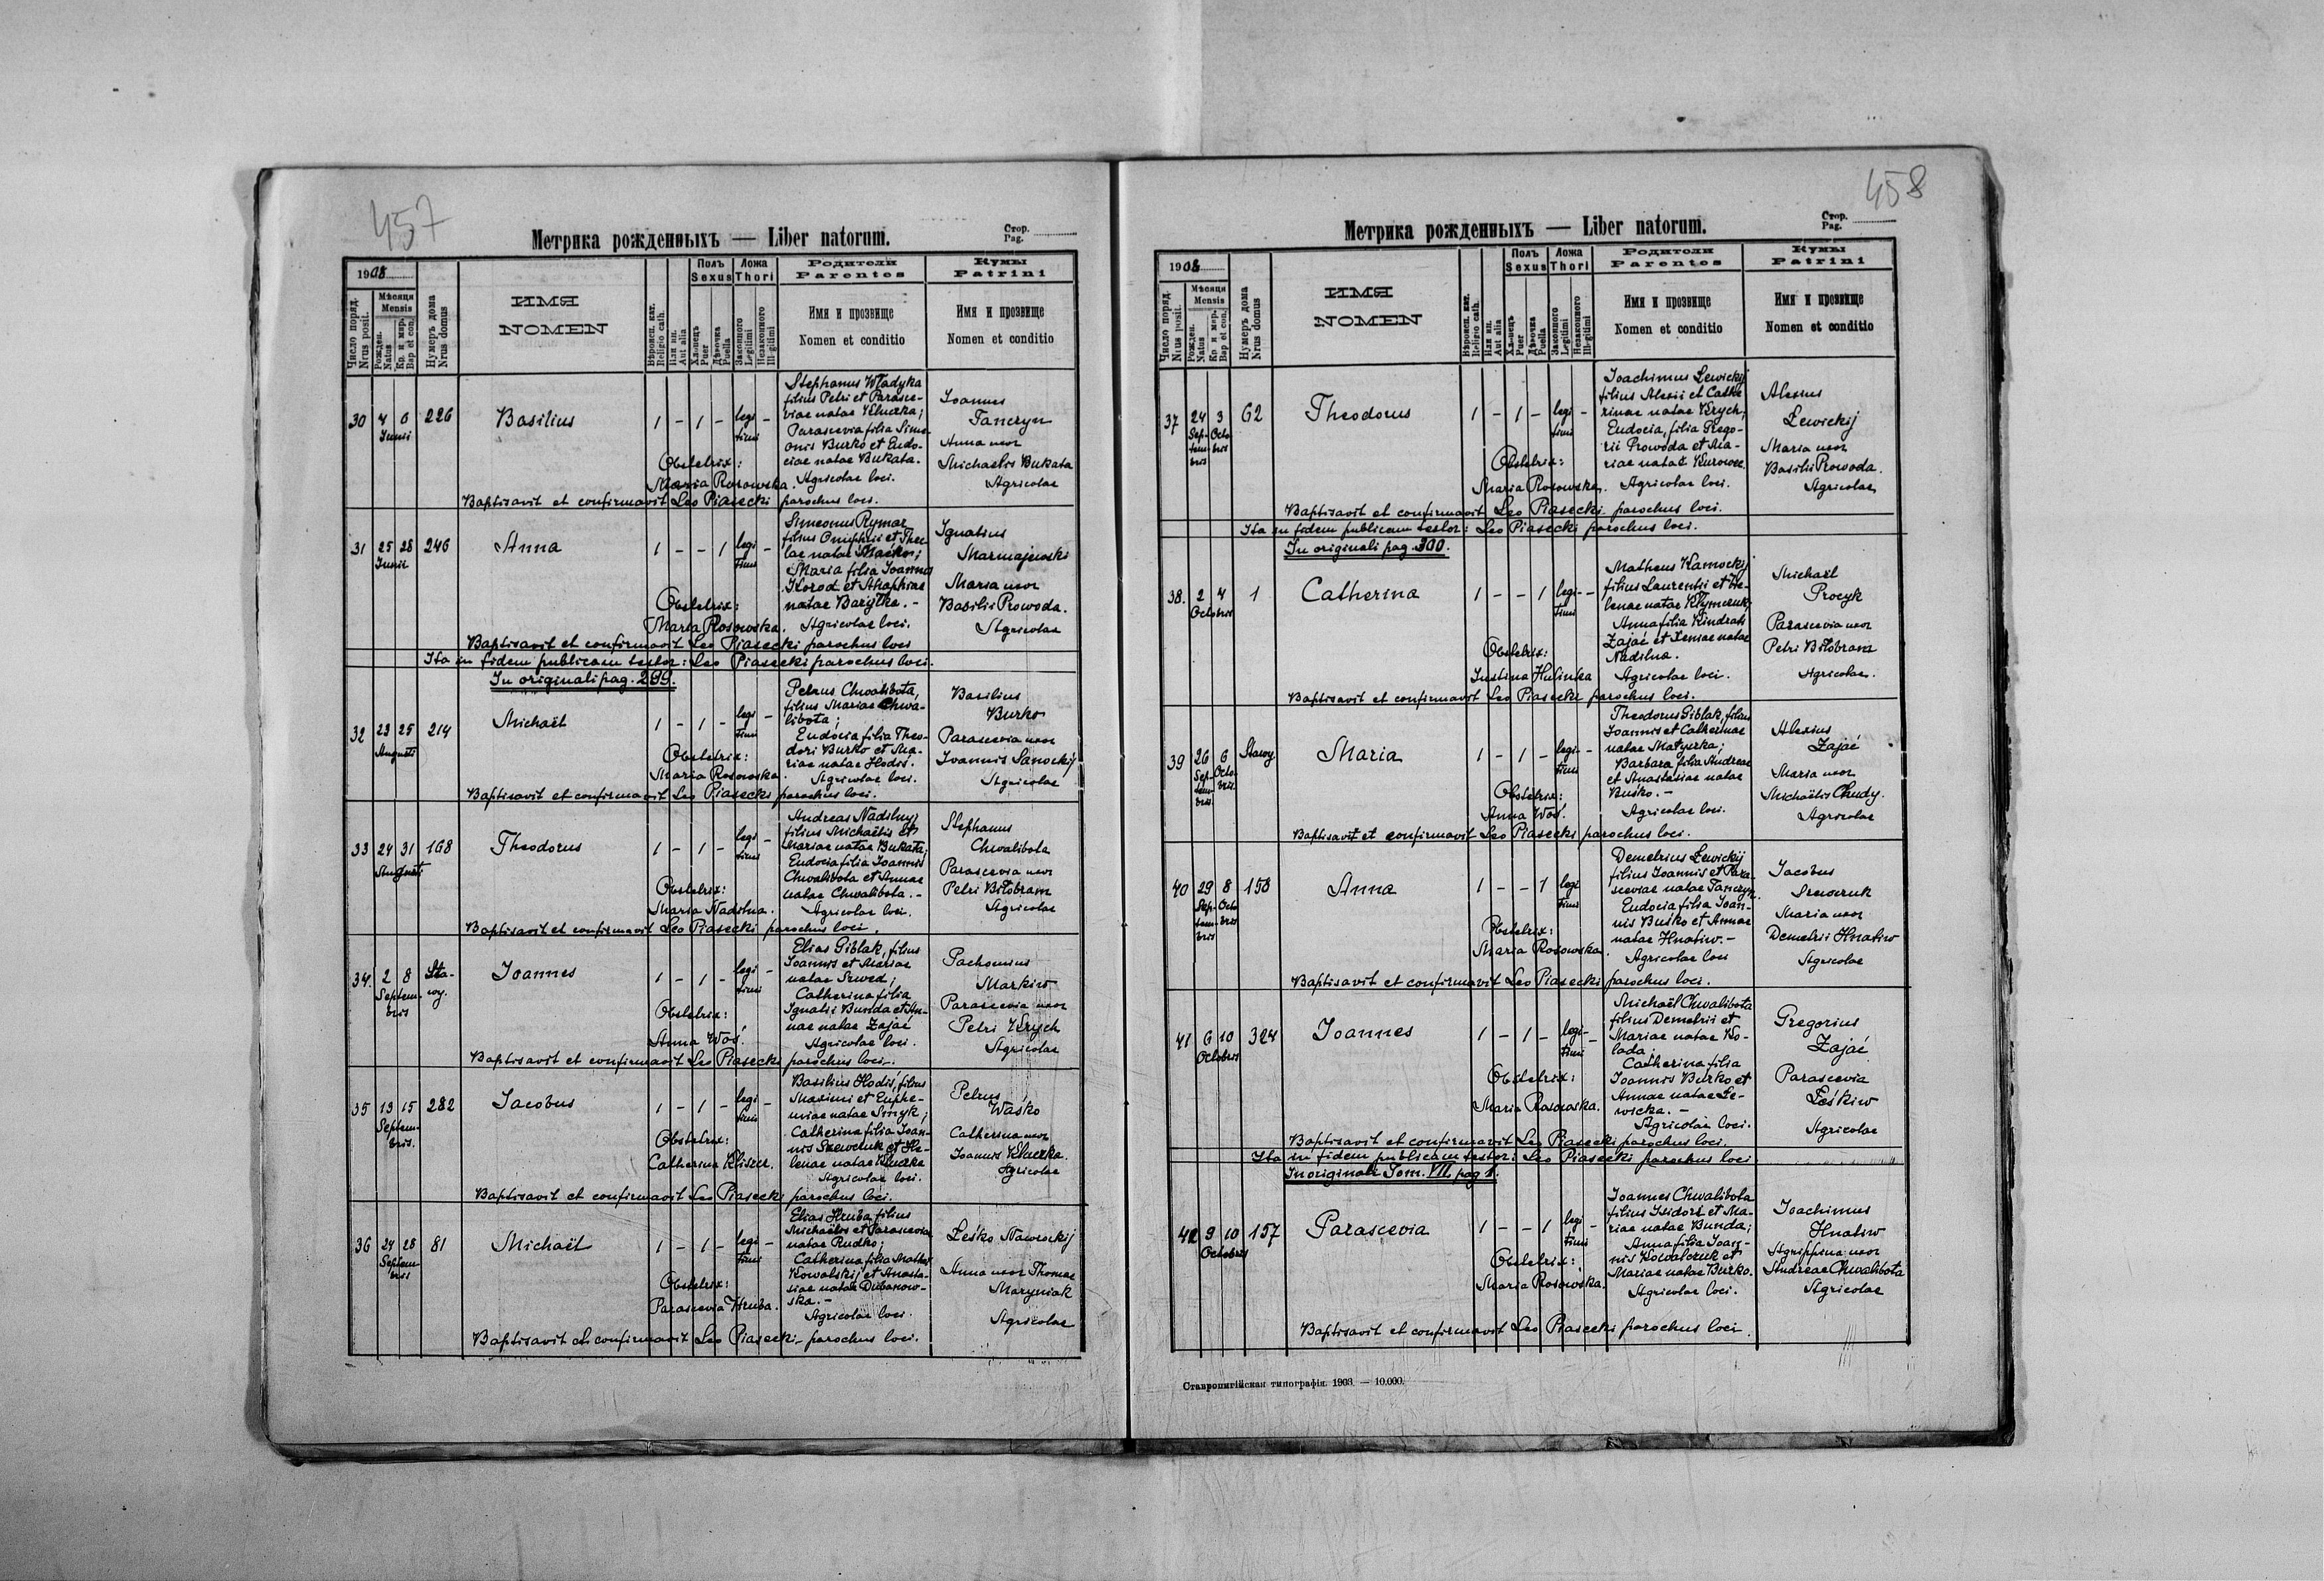 457
Метрика рожденныхъ — Liber natorum.
Стор.
Pag.
1908
Число поряд.
Nrus posit.
Мѣсяця
Mensis
Рожден.
Natus
Кр. и мвр.
Bap et con.
Нумеръ дома
Nrus domus
ИМЯ
NOMEN
Вѣроисп. кат.
Religio cath.
Или ин.
Aut alia
Полъ
Sexus
Хлопецъ
Puer
Дѣвочка
Puella
Ложа
Thori
Законного
Legitimi
Незаконного
Ill-gitimi
Родители
Parentes
Имя и прозвище
Nomen et conditio
Кумы
Patrini
Имя и прозвище
Nomen et conditio
30 4 6 226 Basilius 1 - 1 - legi -
Junii timi
Stephanus Władyka
filius Petri et Parasce-
viae natae Kluczka;
Parascevia filia Sime-
onis Burko et Eudo-
ciae natae Bukata.
Agricolae loci.
Joannes
Tanczyn
Anna uxor
Michaelis Bukata
Agricolae
Obstetrix:
Maria Rosowska.
Baptisavit et confirmavit Leo Piasecki parochus loci.
31 25 28 246 Anna 1 - - 1 legi -
Junii timi
Simeonus Rymar
filius Onuphrii et Thec-
lae natae
Maria filia Joannis
Korod et Agaphiae
natae Baryłka. -
Agricolae loci.
Ignatius
Marmajewski
Maria uxor
Basilii Prowoda.
Agricolae
Obstetrix:
Maria Rosowska.
Baptisavit et confirmavit Leo Piasecki parochus loci
Ita in fidem publicam testor: Leo Piasecki parochus loci.
In originali pag. 299.
32 23 25 214 Michaël 1 - 1 - legi -
Augusti timi
Petrus Chwalibota,
filius Mariae Chwa-
libota;
Eudocia filia Theo-
dori Burko et Ma-
riae natae Hodis.
Agricolae loci.
Basilius
Burko
Parascevia uxor
Joannis Sanockij
Agricolae
Obstetrix:
Maria Rosowska.
Baptisavit et confirmavit Leo Piasecki parochus loci.
33 24 31 168 Theodorus 1 - 1 - legi -
Augusti timi
Andreas Nadilnyj
filius Michaëlis et
Mariae natae Bukata;
Eudocia filia Joannis
Chwalibota et Annae
natae Chwalibota. -
Agricolae loci.
Stephanus
Chwalibota
Parascevia uxor
Petri Biłobram
Agricolae
Obstetrix:
Maria Nadilna.
Baptisavit et confirmavit Leo Piasecki parochus loci.
34. 2 8 Sta-
woy. Joannes 1 - 1 - legi -
Septem-
bris timi
Elias Giblak, filius
Joannis et Mariae
natae Szwed;
Catherina filia
Ignatii Bunda et An-
nae natae Zajać
Agricolae loci.
Pachomius
Markiw
Parascevia uxor
Petri Krych
Agricolae
Obstetrix:
Anna Woś.
Baptisavit et confirmavit Leo Piasecki parochus loci.
35 13 15 282 Jacobus 1 - 1 - legi -
Septem-
bris. timi
Basilius Hodiś, filius
Maximi et Euphe-
miae natae Smyk;
Catherina filia Joan-
nis Szewczuk et He-
lenae natae Kluczka
Agricolae loci.
Petrus
Waśko
Catherina uxor
Joannis Kluczka.
Agricolae
Obstetrix:
Catherina Kliszcz.
Baptisavit et confirmavit Leo Piasecki parochus loci.
36 24 28 81 Michaël 1 - 1 - legi -
Septem-
bris timi
Elias Hruba, filius
Michaëlis et Parascevia
natae Rudko;
Catherina filia Mathei
Kowalskij et Anasta-
siae natae Dubanow-
ska. -
Agricolae loci.
Leśko Nawrockij
Anna uxor Thomae
Maryniak
Agricolae
Obstetrix:
Parascevia Hruba.
Baptisavit et confirmavit Leo Piasecki parochus loci.
458
Метрика рожденныхъ — Liber natorum.
Стор.
Pag.
1908
Число поряд.
Nrus posit.
Мѣсяця
Mensis
Рожден.
Natus
Кр. и мвр.
Bap et con.
Нумеръ дома
Nrus domus
ИМЯ
NOMEN
Вѣроисп. кат.
Religio cath.
Или ин.
Aut alia
Полъ
Sexus
Хлопецъ
Puer
Дѣвочка
Puella
Ложа
Thori
Законного
Legitimi
Незаконного
Ill-gitimi
Родители
Parentes
Имя и прозвище
Nomen et conditio
Кумы
Patrini
Имя и прозвище
Nomen et conditio
37 24 3 62 Theodorus 1 - 1 - legi -
Sep- Octo- timi
tem- bris
bris
Joachimus Lewickij
filius Alexii et Cathe-
rinae natae Krych;
Eudocia, filia Grego-
rii Prowoda et Ma-
riae natae Kurowec.
Agricolae loci.
Alexius
Lewickij
Maria uxor
Basilii Prowoda.
Agricolae
Obstetrix:
Maria Rosowska.
Baptisavit et confirmavit Leo Piasecki parochus loci.
Ita in fidem publicam testor: Leo Piasecki parochus loci.
In originali pag. 300.
38. 2 4 1 Catherina 1 - - 1 legi -
Octobris timi
Matheus Karnockij
filius Laurentii et He-
lenae natae Klymczuk;
Anna filia Kindrati
Zajać et Xeniae natae
Nadilna.
Agricolae loci.
Michaël
Procyk
Parascevia uxor
Petri Biłobram
Agricolae.
Obstetrix:
Justina Hulinka
Baptisavit et confirmavit Leo Piasecki parochus loci.
39 26 6 Stawoy Maria 1 - 1 - legi -
Sep- Octo- timi
tem- bris.
bris.
Theodorus Giblak, filius
Joannis et Catherinae
natae Matyczka;
Barbara filia Andreae
et Anastasiae natae
Buśko. -
Agricolae loci.
Alexius
Zajać
Maria uxor
Michaëlis Chudy.
Agricolae
Obstetrix:
Anna Woś.
Baptisavit et confirmavit Leo Piasecki parochus loci.
40 29 8 158 Anna 1 - - 1 legi
Sep- Octo- timi
tem- bris
bris
Demetrius Lewickij
filius Joannis et Para-
sceviae natae Tanczyn.
Eudocia filia Joan-
nis Buśko et Annae
natae Hnatiw. -
Agricolae loci
Jacobus
Szewczuk
Maria uxor
Demetrii Hnatiw
Agricolae
Obstetrix:
Maria Rosowska.
Baptisavit et confirmavit Leo Piasecki parochus loci.
41 6 10 324 Joannes 1 - 1 - legi -
Octobris timi
Michaël Chwalibota
filius Demetrii et
Mariae natae Ko-
lada;
Catherina filia
Joannis Burko et
Annae natae Le-
wicka. -
Agricolae loci.
Gregorius
Zajać
Parascevia
Leśkiw
Agricolae
Obstetrix:
Maria Rosowska.
Baptisavit et confirmavit Leo Piasecki parochus loci.
Ita in fidem publicam testor: Leo Piasecki parochus loci
In originali Tom. VII. pag 1.
42 9 10 157 Parascevia 1 - - 1 legi -
Octobris timi
Joannes Chwalibota
filius Isidori et Ma-
riae natae Bunda;
Anna filia Joan-
nis Kowalczuk et
Mariae natae Burko.
Agricolae loci.
Joachimus
Hnatiw
Agrippina uxor
Andreae Chwalibota
Agricolae
Obstetrix:
Maria Rosowska.
Baptisavit et confirmavit Leo Piasecki parochus loci.
Ставропигійская типографія. 1903. — 10.000.